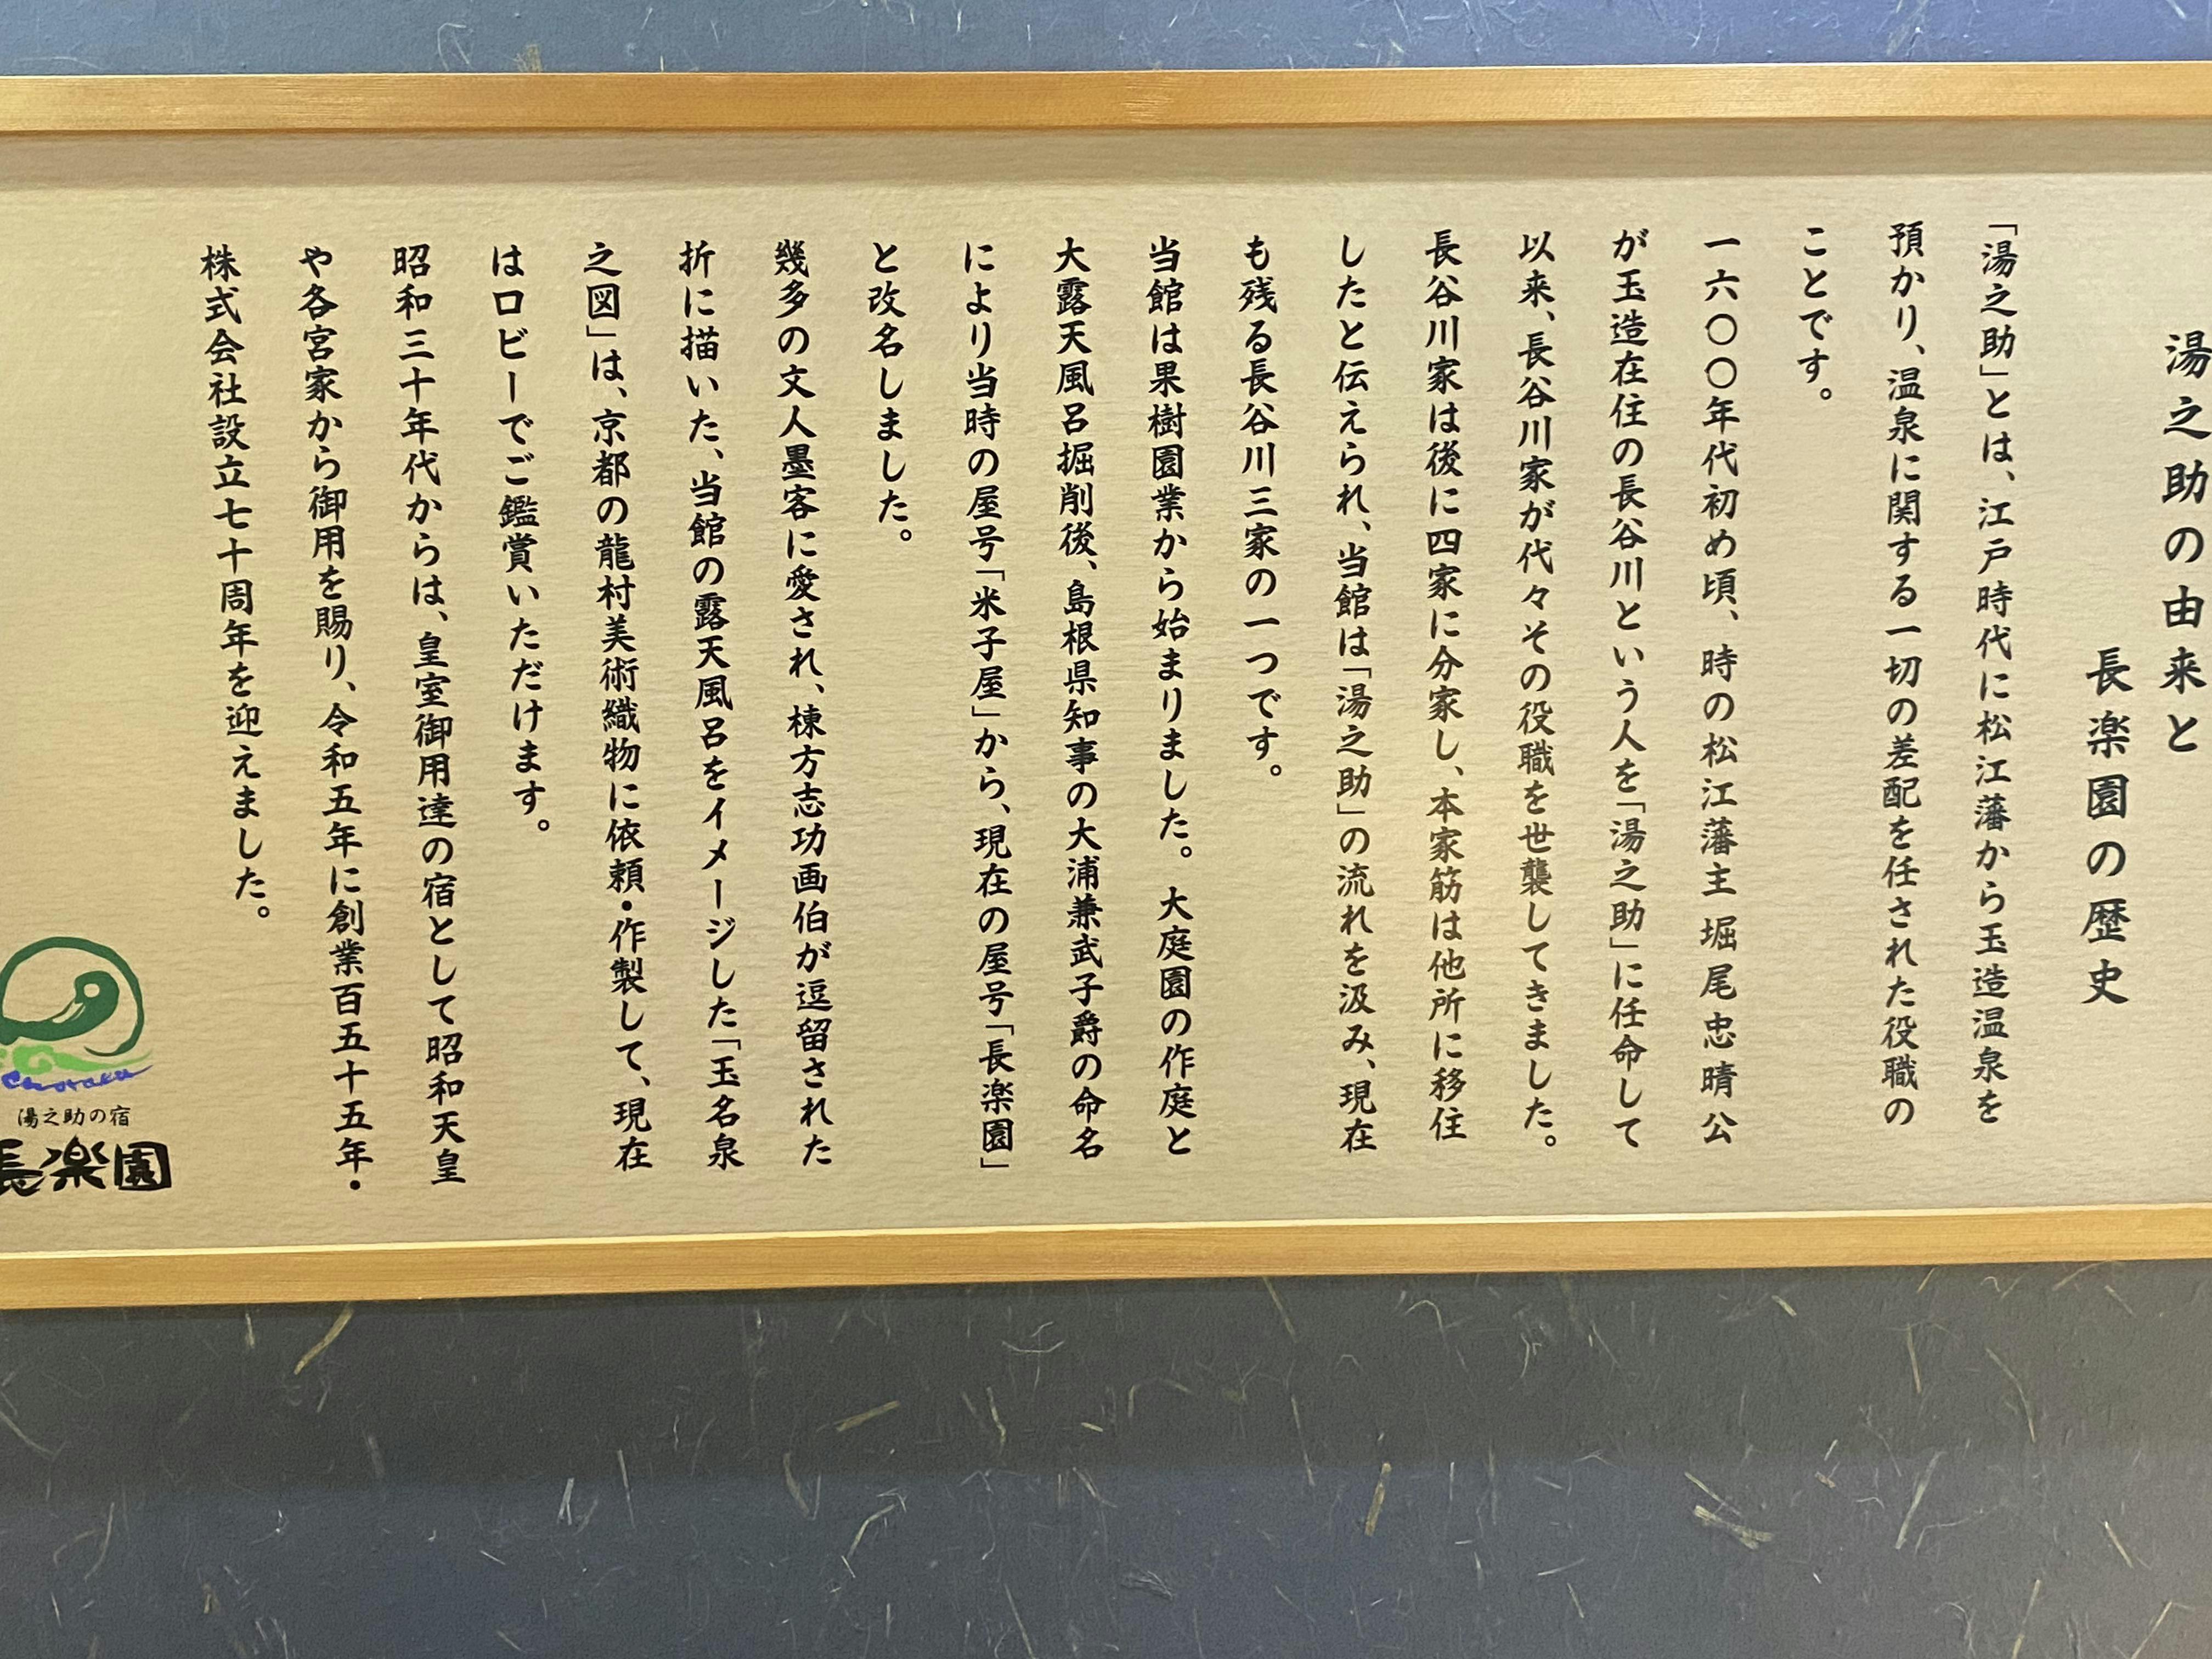 湯之助の由来と
長楽園の歴史
「湯之助」とは、江戸時代に松江藩から玉造温泉を
預かり、温泉に関する一切の差配を任された役職の
ことです。
一六〇〇年代初め頃、時の松江藩主 堀尾忠晴公
が玉造在住の長谷川という人を「湯之助」に任命して
以来、長谷川家が代々その役職を世襲してきました。
長谷川家は後に四家に分家し、本家筋は他所に移住
したと伝えられ、当館は「湯之助」の流れを汲み、現在
も残る長谷川三家の一つです。
当館は果樹園業から始まりました。大庭園の作庭と
大露天風呂掘削後、島根県知事の大浦兼武子爵の命名
により当時の屋号「米子屋」から、現在の屋号「長楽園」
と改名しました。
幾多の文人墨客に愛され、棟方志功画伯が逗留された
折に描いた、当館の露天風呂をイメージした「玉名泉
之図」は、京都の龍村美術織物に依頼・作製して、現在
はロビーでご鑑賞いただけます。
昭和三十年代からは、皇室御用達の宿として昭和天皇
や各宮家から御用を賜り、令和五年に創業百五十五年・
株式会社設立七十周年を迎えました。
Choraku
湯之助の宿
長楽園